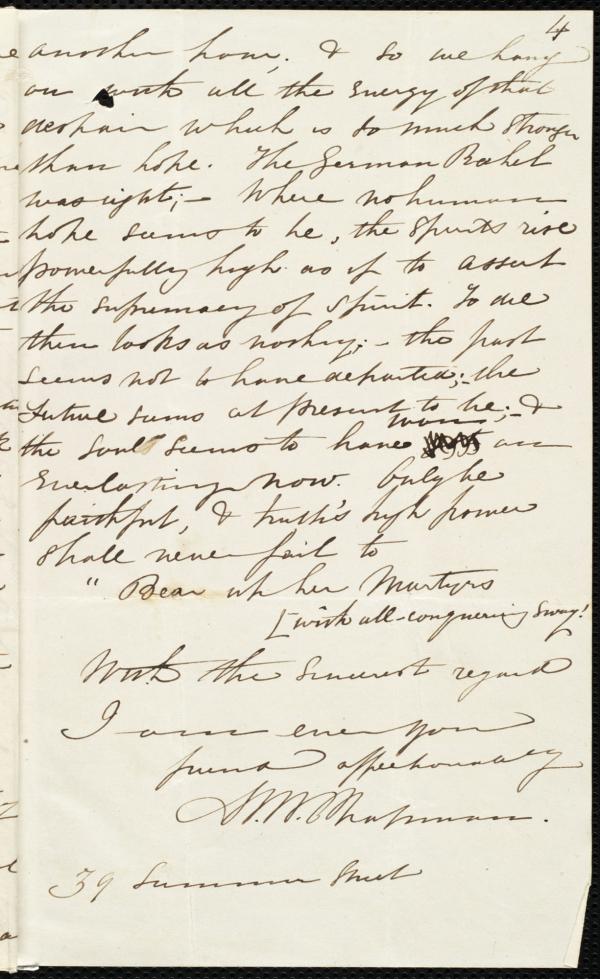 4
another hour, & so we hang
on with all the energy of that
despair which is so much stronger
than hope. The German Rahel
was right; – Where no human
hope seems to be, the spirits rise
powerfully high as if to assert
the supremacy of Spirit. To die
then looks as nothing; – the past
seems not to have departed; – the
Future seems at present to be; – &
the soul seems to have won an
Everlasting Now. Only be
faithful, & truth's high power
shall never fail to
" Bear up her Martyrs
[with all-conquering sway!
With the sincerest regard
I am ever your
friend affectionately
M. W. Chapman.
39 Summer Street